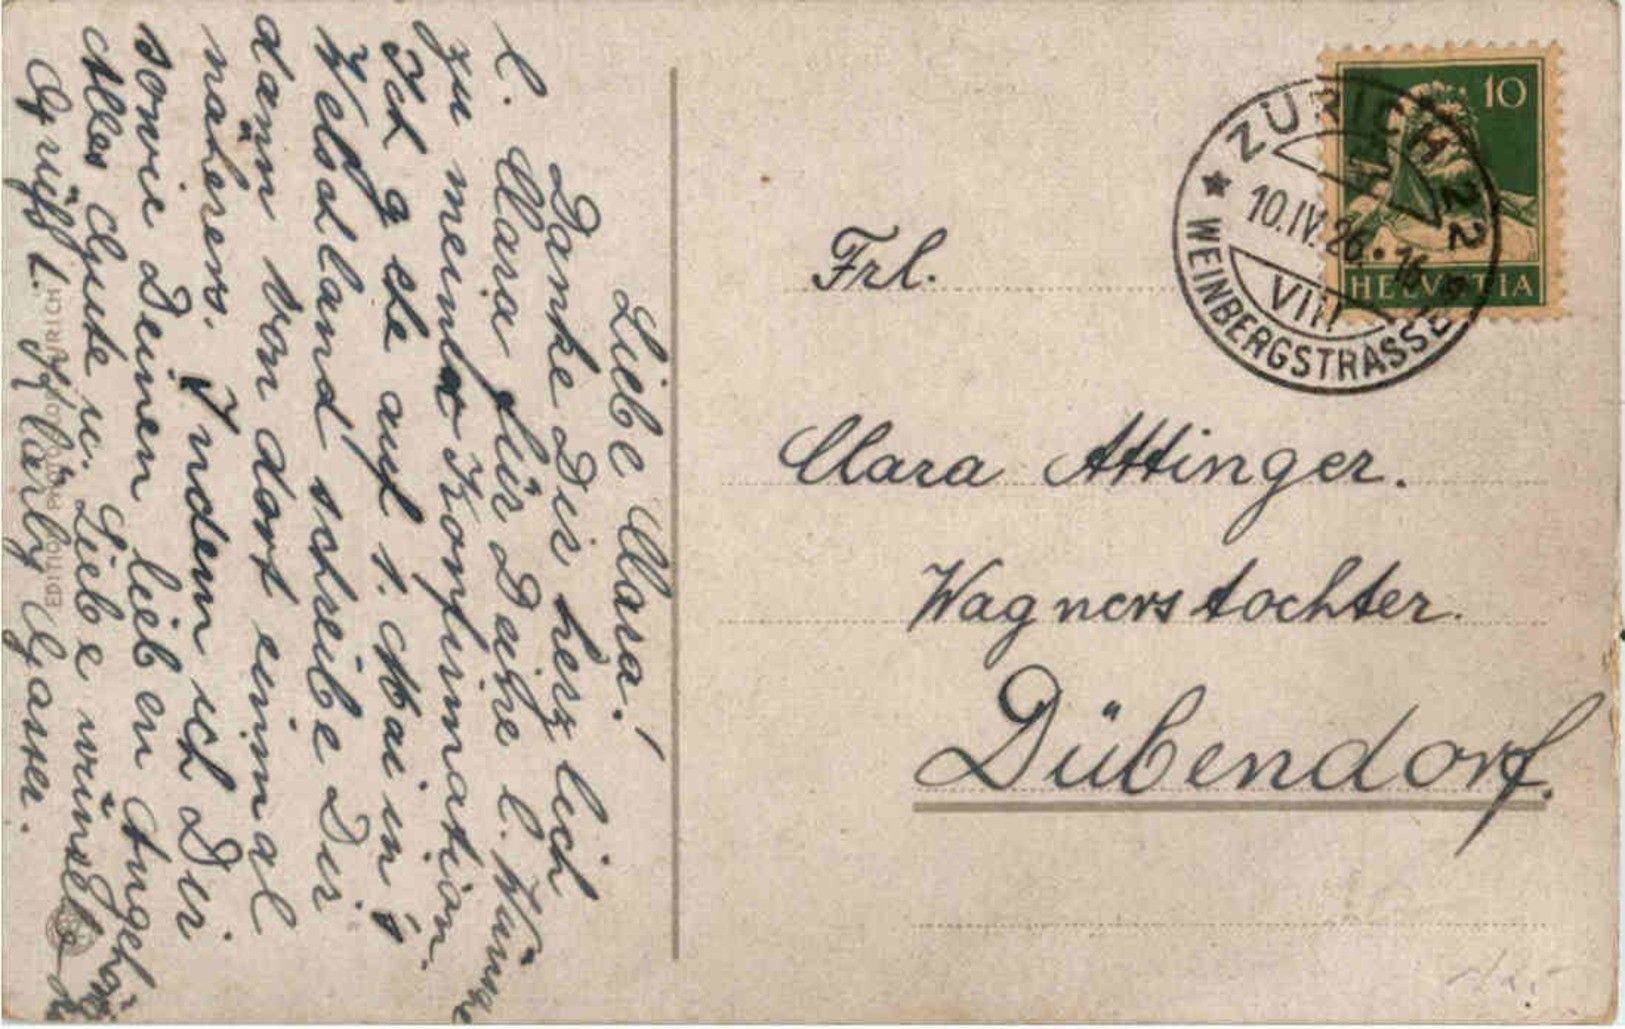 Liebe Clara!
Danke Dir herzlich
l. Clara für Deine l. Wünsche
zu meiner Konfirmation.
Ich gehe auf 1. Mai in's
Welschland schreibe Dir
dann von dort einmal
näheres. Indem ich Dir
sowie Deinen lieben Angehör
Alles Gute u. Liebe wünsche
Grüsst L. Klärly Gasser.
EDITION PHOTOGLOB ZÜRICH
ZÜRICH 22
10.IV.26.
VIII
WEINBERGSTRASSE
10
HELVETIA
Frl.
Clara Attinger.
Wagnerstochter.
Dübendorf.